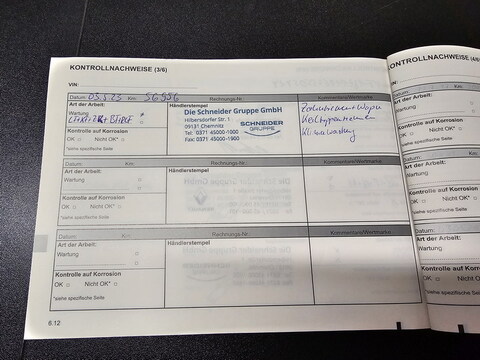 KONTROLLNACHWEISE (3/6)
VIN:
Datum: 03.5.23 Km: 56956
Rechnungs-Nr.:
Kommentare/Wertmarke
Art der Arbeit:
Wartung
Kontrolle auf Korrosion
OK □ Nicht OK* □
*siehe spezifische Seite
Händlerstempel
Die Schneider Gruppe GmbH
Hilbersdorfer Str. 1
09131 Chemnitz
Tel: 0371 45000-1000
Fax: 0371 45000-1900
SCHNEIDER
GRUPPE
Klimawartung
Datum: Km:
Rechnungs-Nr.:
Kommentare/Wertmarke
Art der Arbeit:
Wartung
Kontrolle auf Korrosion
OK □ Nicht OK* □
*siehe spezifische Seite
Händlerstempel
Datum: Km:
Rechnungs-Nr.:
Kommentare/Wertmarke
Art der Arbeit:
Wartung
Kontrolle auf Korrosion
OK □ Nicht OK* □
*siehe spezifische Seite
Händlerstempel
6.12
KONTROLLNACHWEISE (4/6)
VIN:
Datum:
Art der Arbeit:
Wartung
Kontrolle auf
OK □ Nicht OK
*siehe spezifische Seite
Datum:
Art der Arbeit:
Wartung
Kontrolle auf
OK □ Nicht OK
*siehe spezifische Seite
Datum:
Art der Arbeit:
Wartung
Kontrolle auf
OK □ Nicht OK
*siehe spezifische Seite